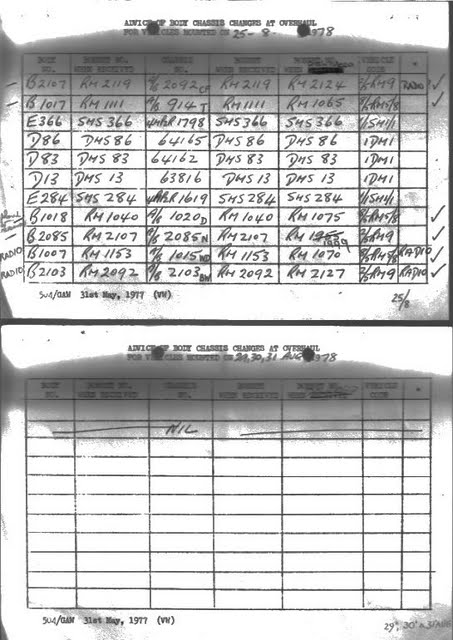 ADVICE OF BODY CHASSIS CHANGES AT OVERHAUL
FOR VEHICLES MOUNTED ON 25-8-1978
BODY NO. BONNET NO. WHEN RECEIVED CHASSIS NO. BONNET WHEN RECEIVED BONNET NO. WHEN VEHICLE CODE
B2107 RM2119 R/S 2092 CF RM2119 RM2124 2/5RM9 RADIO ✓
B1017 RM1111 R/S 914 T RM1111 RM1065 2/5RM5/8 ✓
E366 SMS366 4PR1798 SMS366 SMS366 1/SM1/1
D86 DMS86 64165 DMS86 DMS86 1DM1
D83 DMS83 64162 DMS83 DMS83 1DM1
D13 DMS13 63816 DMS13 DMS13 1DM1
E284 SMS284 4PR1619 SMS284 SMS284 1/SM1/1
B1018 RM1040 R/S 1020 D RM1040 RM1075 2/5RM5/8 ✓
B2085 RM2107 R/S 2085 N RM2107 RM 1989 2/5RM9 ✓
RADIO B1007 RM1153 R/S 1015 WD RM1153 RM1070 2/5RM5/8 RADIO ✓
RADIO B2103 RM2092 R/S 2103 BW RM2092 RM2127 2/5RM9 RADIO ✓
504/GAW 31st May, 1977 (VW) 25/8
ADVICE OF BODY CHASSIS CHANGES AT OVERHAUL
FOR VEHICLES MOUNTED ON 29,30,31 AUG 1978
BODY NO. BONNET NO. WHEN RECEIVED CHASSIS NO. BONNET WHEN RECEIVED BONNET NO. WHEN VEHICLE CODE
NIL
504/GAW 31st May, 1977 (VW) 29, 30 & 31 AUG